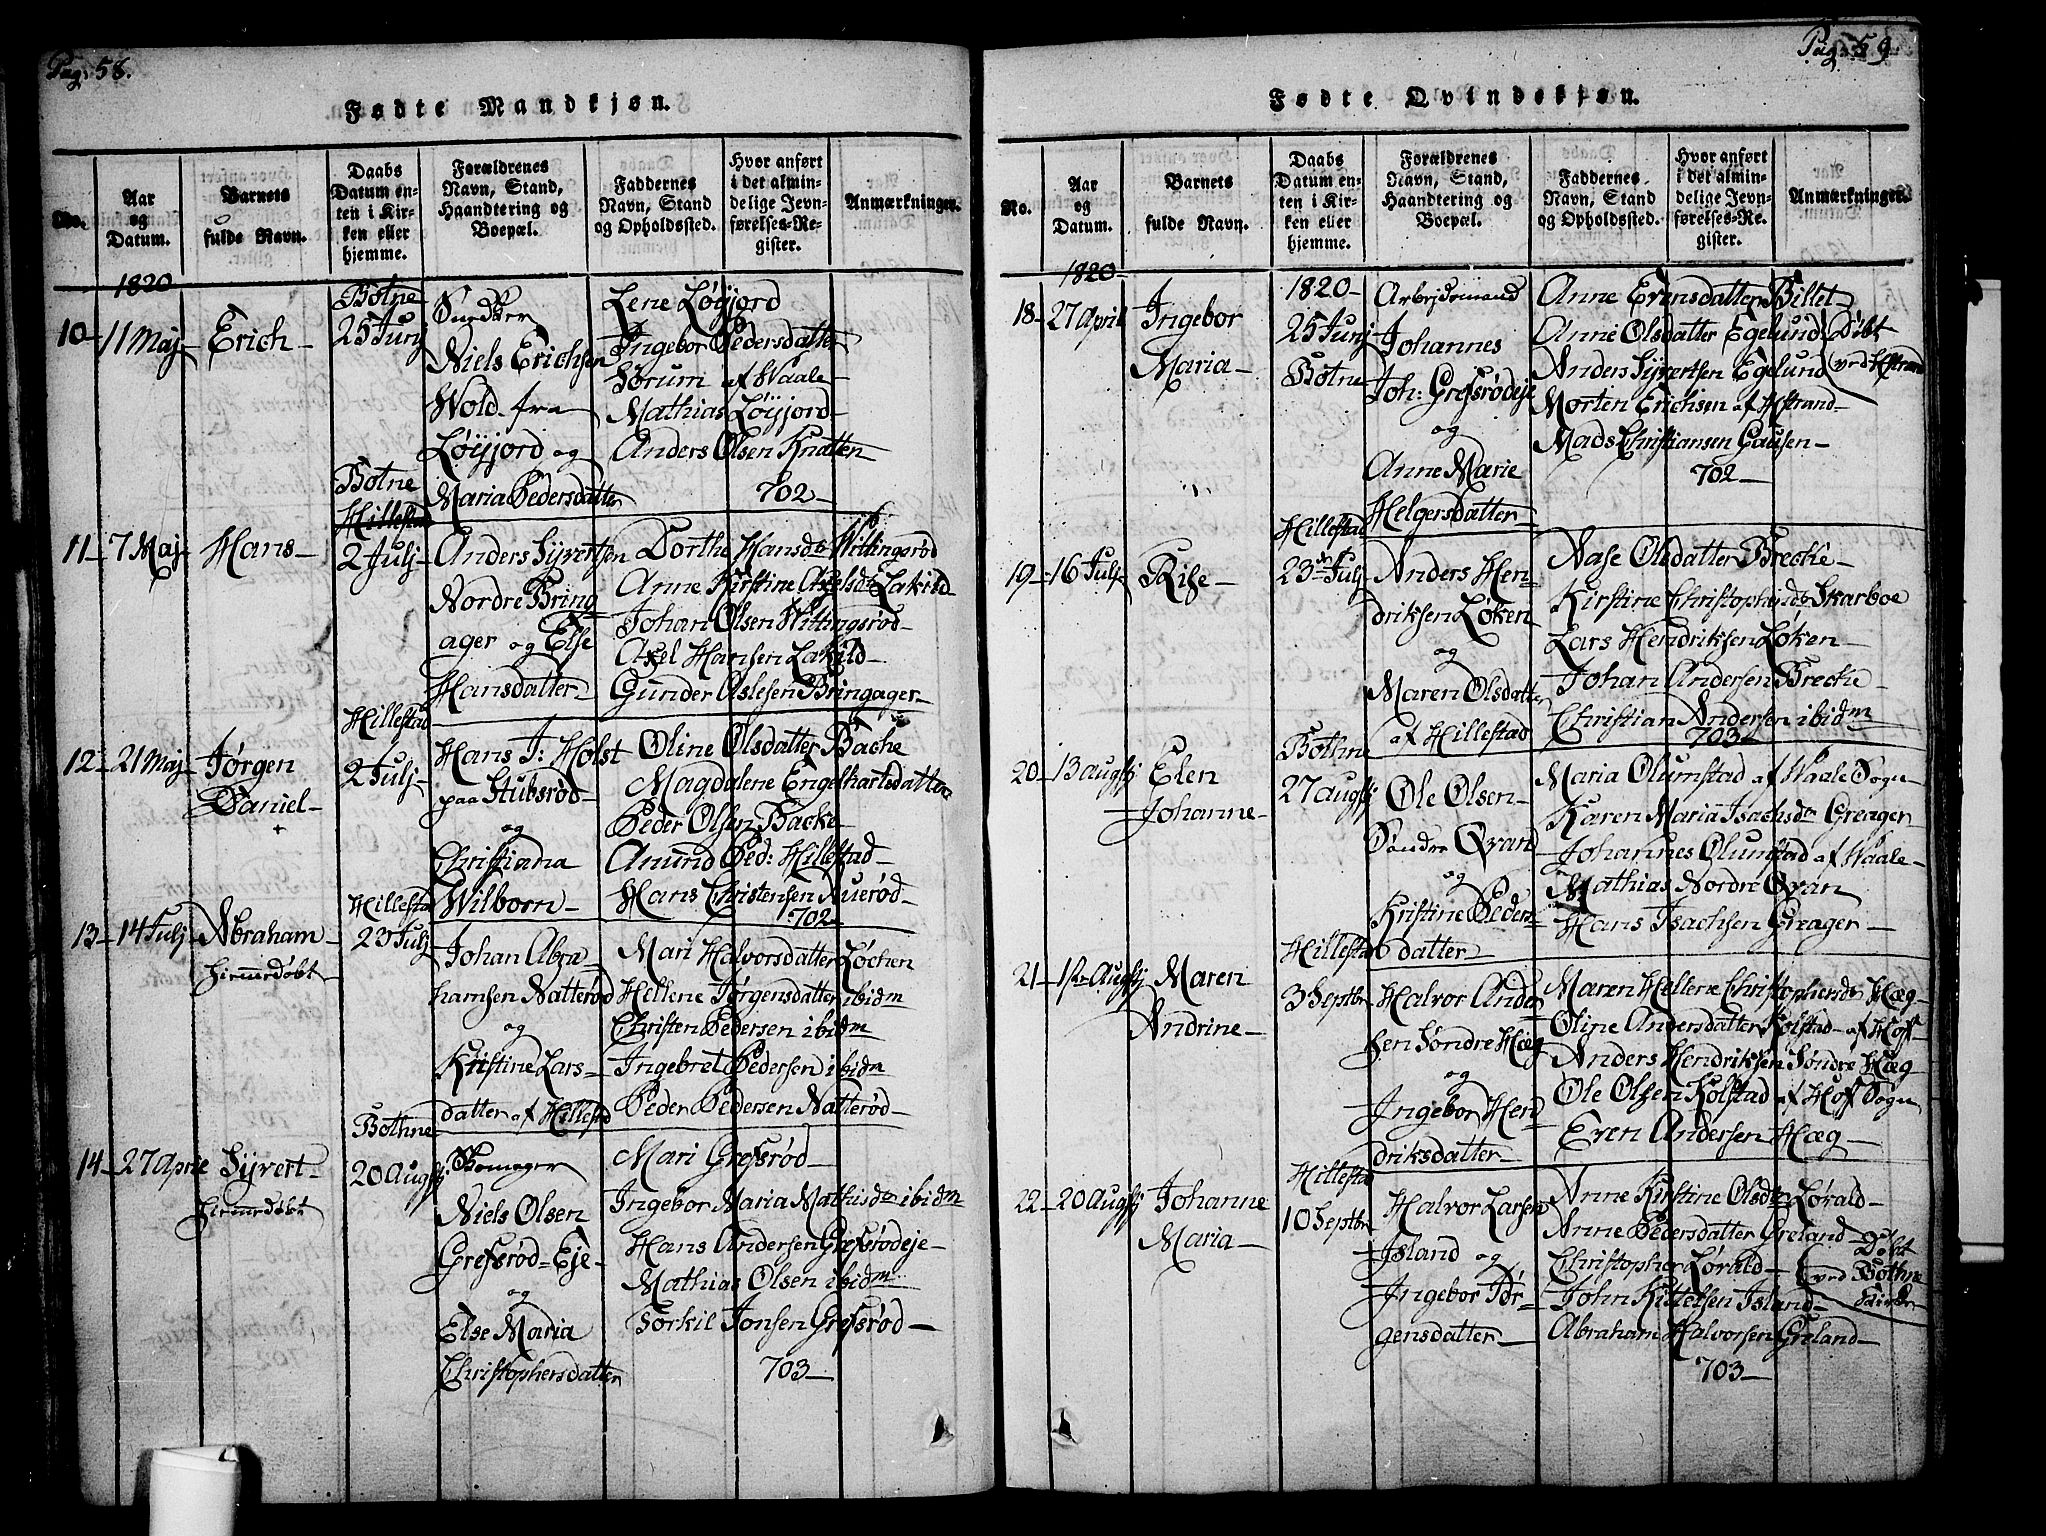 Pag: 58.
Fødte Mandkjøn.
No.
Aar og Datum.
Barnets fulde Navn.
Daabs Datum enten i Kirken eller hjemme.
Forældrenes Navn, Stand, Haandtering og Boepæl.
Faddernes Navn, Stand og Opholdssted.
Hvor anført i det almindelige Jevnførelses-Register.
Anmærkninger.
1820
10- 11 Maj- Erich-
Botne
25 Junj
Snedker
Niels Erichsen
Wold fra
Løyjord og
Maria Pedersdatter
Lene Løyjord
Ingebor Pedersdatter
Sørum af Waale-
Mathias Løyjord-
Anders Olsen Knatten
702-
Botne
Hillestad
11- 7 Maj- Hans-
2 Julj-
Anders Syvertsen
Nordre Bring
ager og Else
Hansdatter-
Dorthe Hansdr Wittingsrød
Anne Kirstine Axelsdr Lakild-
Johan Olsen Wittingsrød-
Axel Hansen Lakild-
Gunder Aslesen Bringager-
Hillestad
12- 21 Maj- Jørgen
Daniel-
2 Julj-
Hans J: Holst
paa Stubsrød-
og
Christiana
Wilborn-
Oline Olsdatter Bache
Magdalene Engelhartsdatter
Peder Olsen Backe-
Amund Ped: Hillestad-
Hans Christensen Auerød-
702-
Hillestad
13- 14 Julj- Abraham-
hiemmedøbt
23 Julj-
Johan Abra
hamsen Natterød
og
Kristine Lars-
datter af Hillestad
Mari Halvorsdatter Løchen
Hellene Jørgensdatter ibidm
Christen Pedersen ibidm
Ingebret Pedersen ibidm
Peder Pedersen Natterød-
Bothne
14- 27 April Syvert-
hiemmedøbt
20 Augstj
Niels Olsen
Grefsrød=Eje-
og
Else Maria
Christophersdatter
Mari Grefsrød-
Ingebor Maria Mathisdr ibidm
Hans Andersen Grefsrødeje-
Mathias Olsen ibidm
Torkil Jonsen Grefsrød-
703-
Pag: 59
Fødte Qvindekjøn.
No.
Aar og Datum.
Barnets fulde Navn.
Daabs Datum enten i Kirken eller hjemme.
Forældrenes Navn, Stand, Haandtering og Boepæl.
Faddernes Navn, Stand og Opholdssted.
Hvor anført i det almindelige Jevnførelses-Register.
Anmærkninger.
1820-
18- 27 April Ingebor
Maria-
1820-
25 Junj
Botne
Arbejdsmand
Johannes
Joh: Grefsrødeje
og
Anne Marie
Helgersdatter-
Anne Evensdatter Billet-
Anne Olsdatter Egelund
Anders Syvertsen Egelund
Morten Erichsen af Hstrand-
Mads Christiansen Gausen-
702-
Døbt
ved Hstrand
Hillestad
19- 16 Julj- Rise-
23 Julj
Anders Hen-
driksen Løken
og
Maren Olsdatter
af Hillestad
Aase Olsdatter Brecke-
Kirstine Christophersdr Skarboe
Lars Hendriksen Løken-
Johan Andersen Brecke-
Christian Andersen ibidm
703-
Bothne
20- 13 Augstj Elen
Johanne-
27 Augstj
Ole Olsen-
Søndre Qvan
og
Kristine Peders
datter
Maria Olumstad af Waale Sogn
Karen Maria Isachsdr Greager-
Johannes Olumstad af Waale-
Mathias Nordre Qvan
Hans Isachsen Greager-
Hillestad
21- Augstj Maren
Andrine-
3 Septbr
Halvor Ander
sen Søndre Hæg
og
Ingebor Hen
driksdatter-
Maren Hellene Christophersdr Hæg-
Oline Andersdatter Kolstad af Hof-
Anders Hendriksen Søndre Hæg-
Ole Olsen Kolstad af Hof Sogn
Even Andersen Hæg-
Hillestad
22- 20 Augstj Johanne
Maria-
10 Septbr
Halvor Larsen
Island og
Ingebor Jør-
gensdatter-
Anne Kirstine Olsdr Lørald-
Anne Pedersdatter Greland-
Christopher Lørald-
John Kittelsen Island-
Abraham Halvorsen Greland-
703-
Døbt
ved Bothne
Kirke